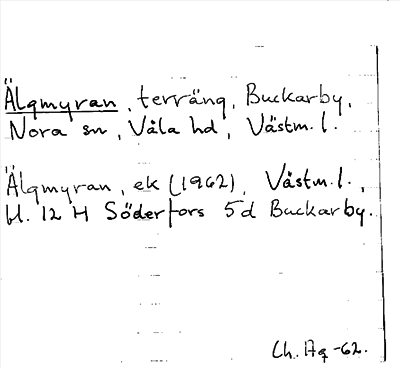 Älgmyran, terräng, Buckarby,
Nora sn, Våla hd, Västm. l.
Älgmyran, ek (1962), Västm. l.,
bl. 12 H Söderfors 5d Buckarby.
Ch. Ag -62.